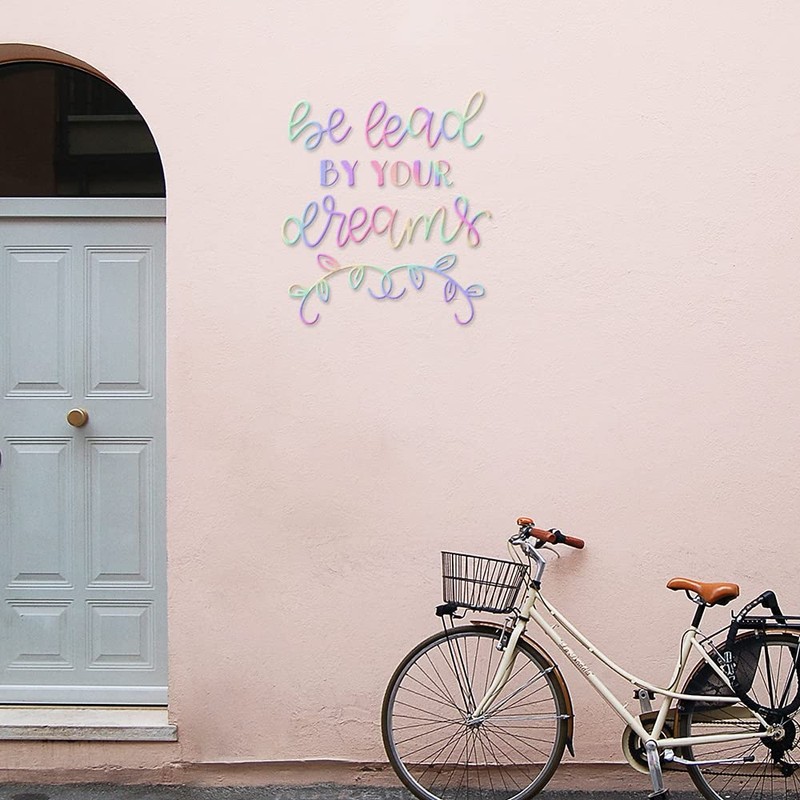 be lead
BY YOUR
dreams